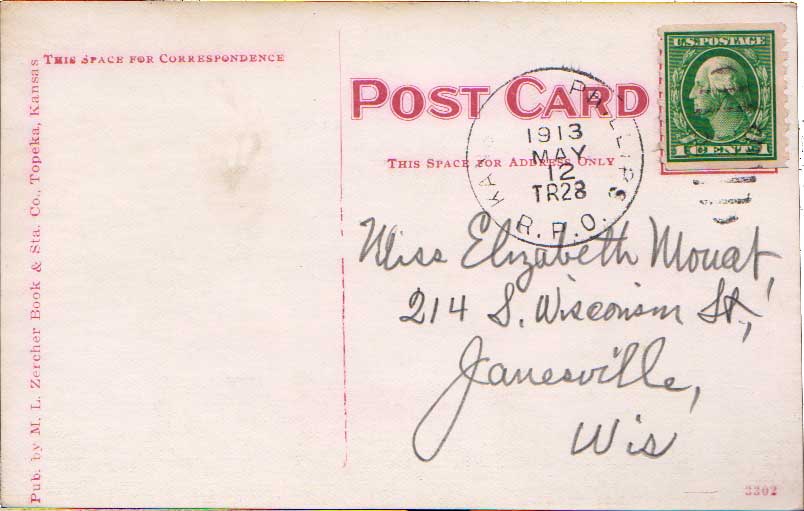 THIS SPACE FOR CORRESPONDENCE
POST CARD
THIS SPACE FOR ADDRESS ONLY
U.S. POSTAGE
1 CENT 1
PHILLIPS
1913
MAY
12
TR28
R.P.O.
Miss Elizabeth Mouat,
214 S. Wisconsin St.,
Janesville,
Wis
Pub. by M. L. Zercher Book & Sta. Co., Topeka, Kansas
3302